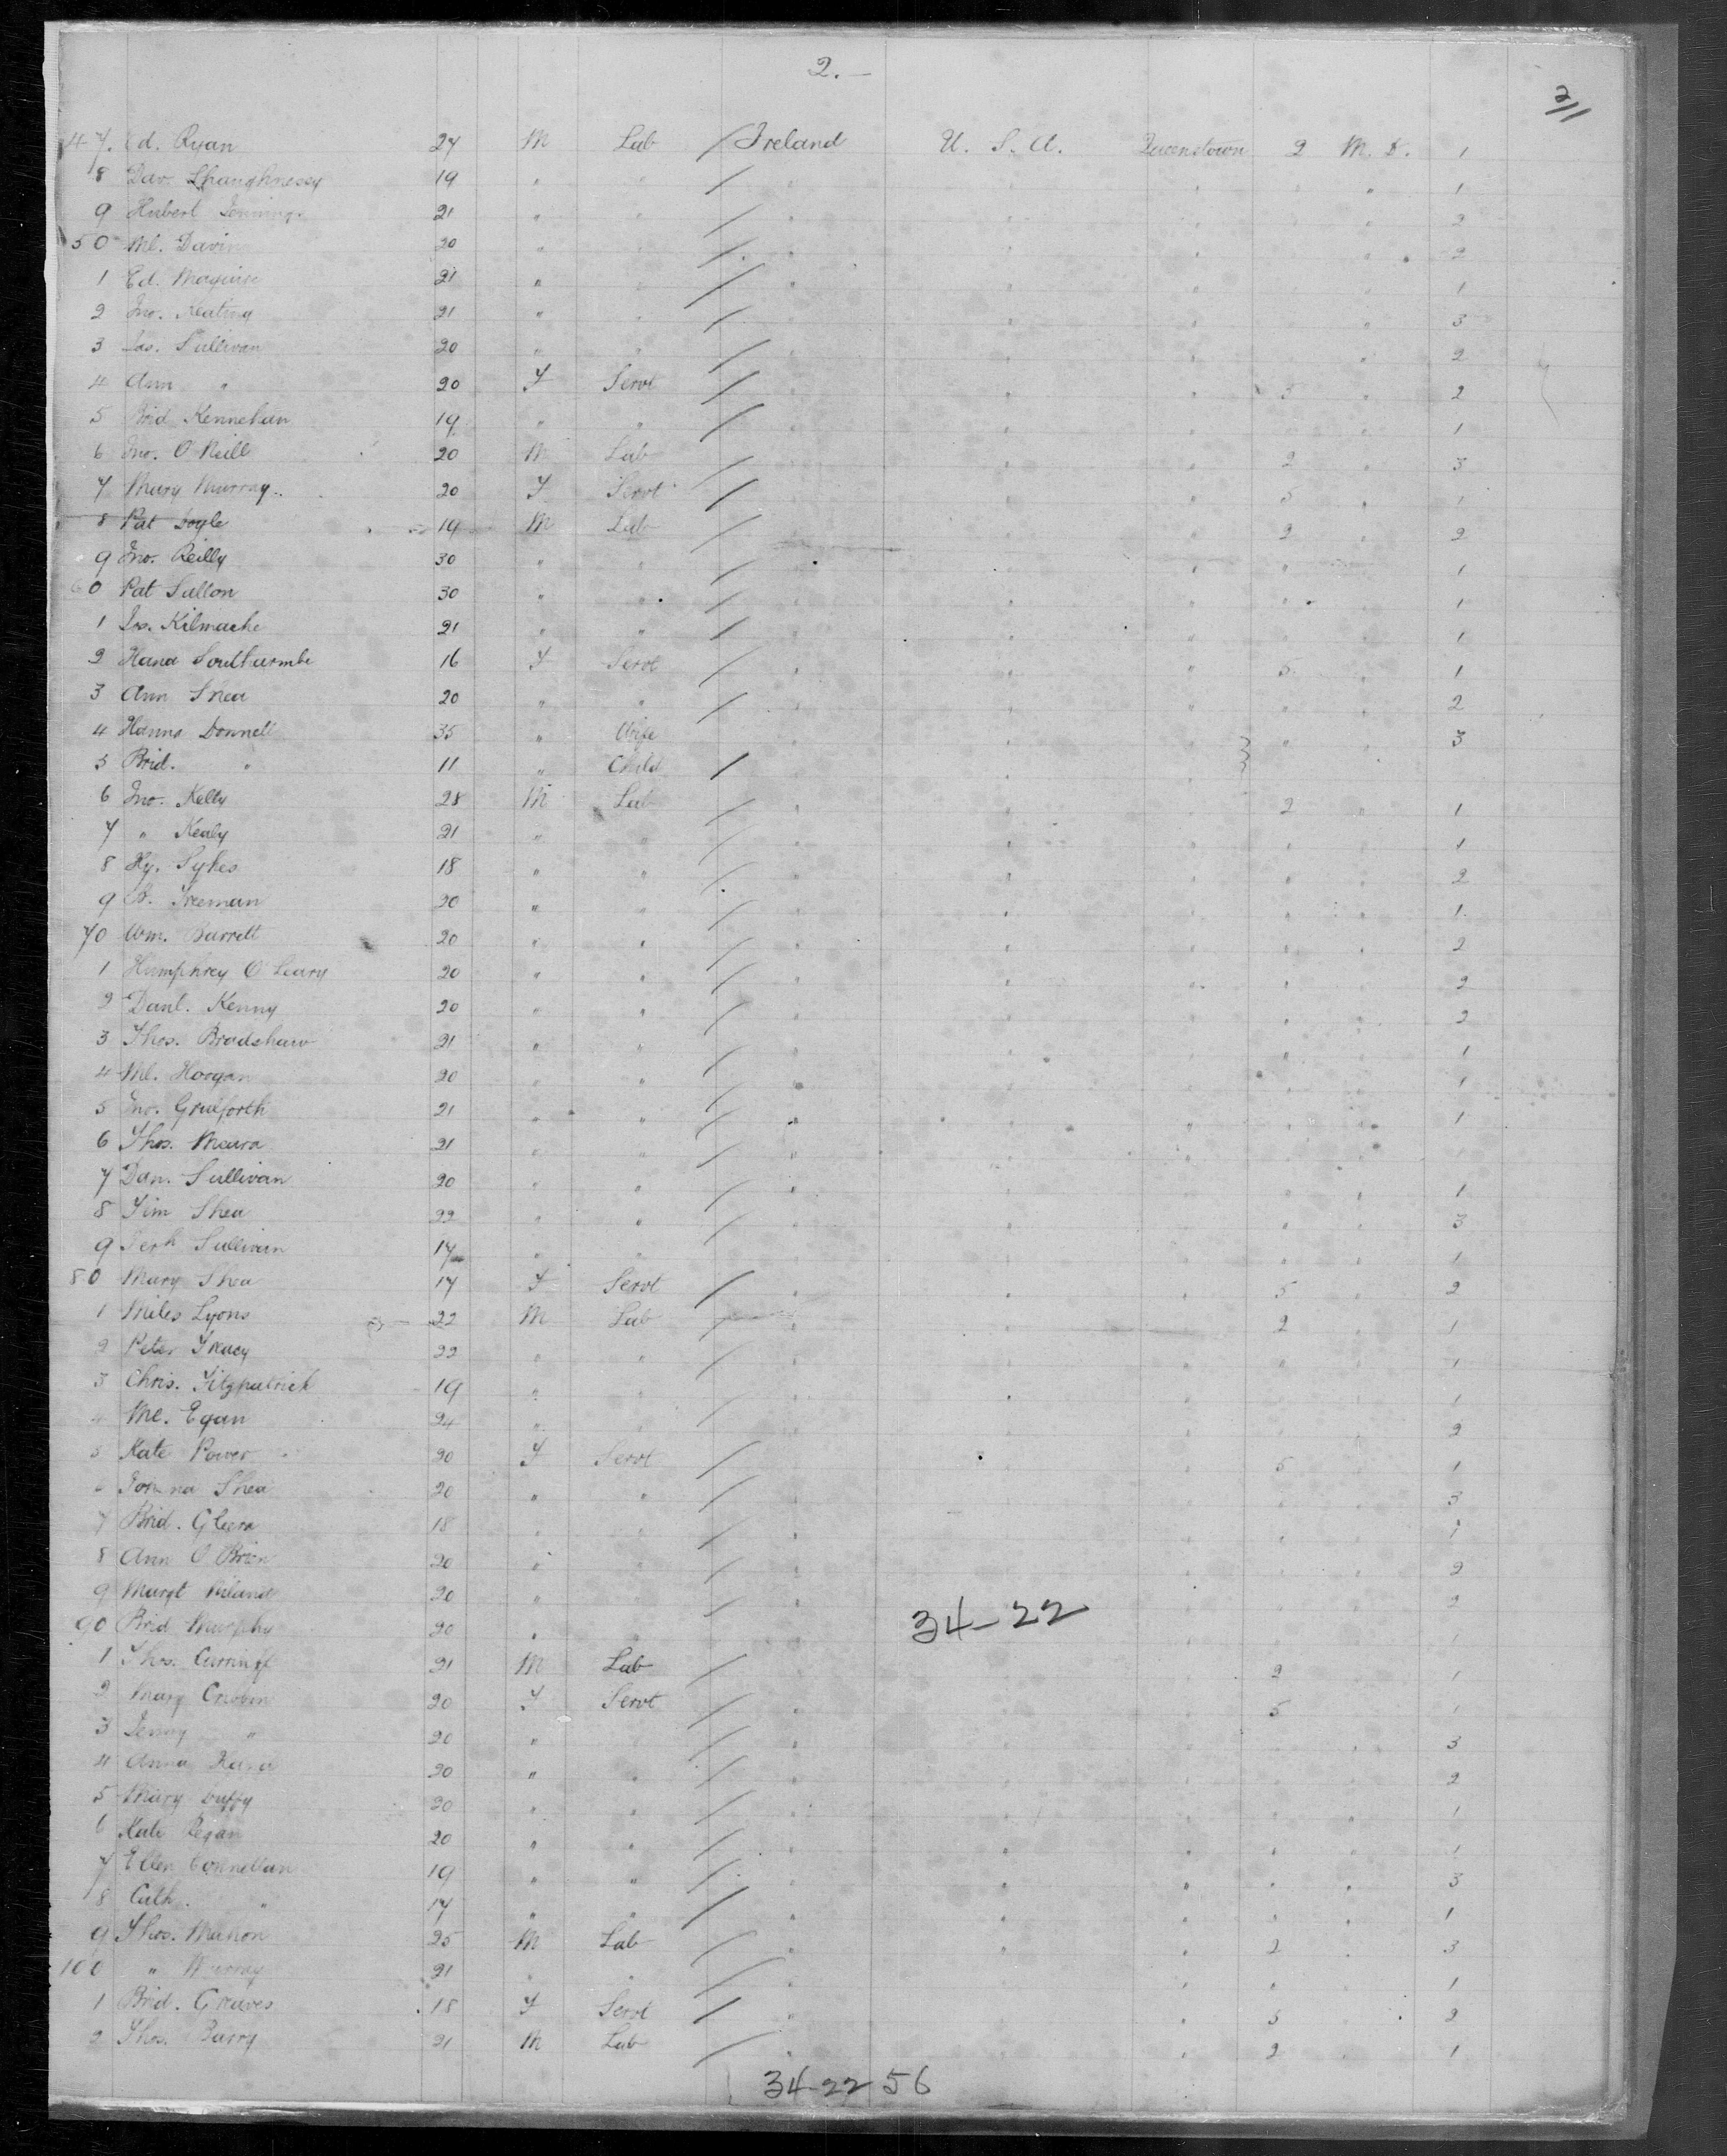 2.—
211
47. Ed. Ryan 24 M Lab / Ireland U. S. A. Queenstown 2 M. D. 1
8 Dav. Shaughnessy 19 " " / " " " " " 1
9 Hubert Jennings 21 " " / " " " " " 2
50 Ml. Davin 20 " " / " " " " " 2
1 Ed. Maguire 21 " " / " " " " " 1
2 Jno. Keating 21 " " / " " " " " 3
3 Jas. Sullivan 20 " " / " " " " " 2
4 Ann " 20 F Servt / " " " 5 " 2
5 Brid Kennehan 19 " " / " " " " " 1
6 Jno. O'Neill 20 M Lab / " " " 2 " 3
7 Mary Murray 20 F Servt / " " " 5 " 1
8 Pat Doyle 19 M Lab / " " " 2 " 2
9 Jno. Reilly 30 " " / " " " " " 1
60 Pat Sullon 30 " " / " " " " " 1
1 Jos. Kilmache 21 " " / " " " " " 1
2 Hana 16 F Servt / " " " 5 " 1
3 Ann Shea 20 " " / " " " " " 2
4 Hanna Donnell 35 " Wife " " " " " 3
5 Brid. " 11 " Child / " " "
6 Jno. Kelly 28 M Lab / " " " 2 " 1
7 " Kealy 21 " " / " " " " " 1
8 Hy. Sykes 18 " " / " " " " " 2
9 Freeman 20 " " / " " " " " 1
70 Wm. Barrett 20 " " / " " " " " 2
1 Humphrey O'Leary 20 " " / " " " " " 2
2 Danl. Kenny 20 " " / " " " " " 2
3 Thos. Bradshaw 21 " " / " " " " " 1
4 Ml. Horgan 20 " " / " " " " " 1
5 Jno. Gralforth 21 " " / " " " " " 1
6 Thos. Meara 21 " " / " " " " "
7 Dan. Sullivan 20 " " / " " " " " 1
8 Tim Shea 22 " " / " " " " " 3
9 Sullivan 17 " " " " " " " 1
80 Mary Shea 17 F Servt / " " " 5 " 2
1 Miles Lyons 22 M Lab / " " " 2 " 1
2 Peter Tracy 22 " " / " " " " " 1
3 Chris. Fitzpatrick 19 " " / " " " " " 1
4 Ml. Egan 24 " " / " " " " " 2
5 Kate Power 20 F Servt / " " " 5 " 1
Shea 20 " " / " " " " " 3
7 Brid. Gleera 18 " " / " " " " " 1
8 Ann O'Brien 20 " " / " " " " " 2
9 Margt Niland 20 " " / " " " " " 2
34-22
90 Brid Murphy 20 " " " " " " " 1
1 Thos. 21 M Lab / " " " 2 " 1
2 Mary 20 F Servt / " " " 5 " 1
3 Jenny " 20 " " / " " " " " 3
4 Anna 20 " " / " " " " " 2
5 Mary Duffy 20 " " / " " " " " 1
6 Kate Regan 20 " " / " " " " " 1
7 Ellen Connellan 19 " " / " " " " " 3
8 Cath. " 17 " " / " " " " " 1
9 Thos. Mahon 25 M Lab / " " " 2 " 3
100 " Murray 21 " " / " " " " " 1
1 Brid. Greaves 18 F Servt / " " " 5 " 2
2 Thos. Barry 21 M Lab / " " " 2 " 1
34-22 56